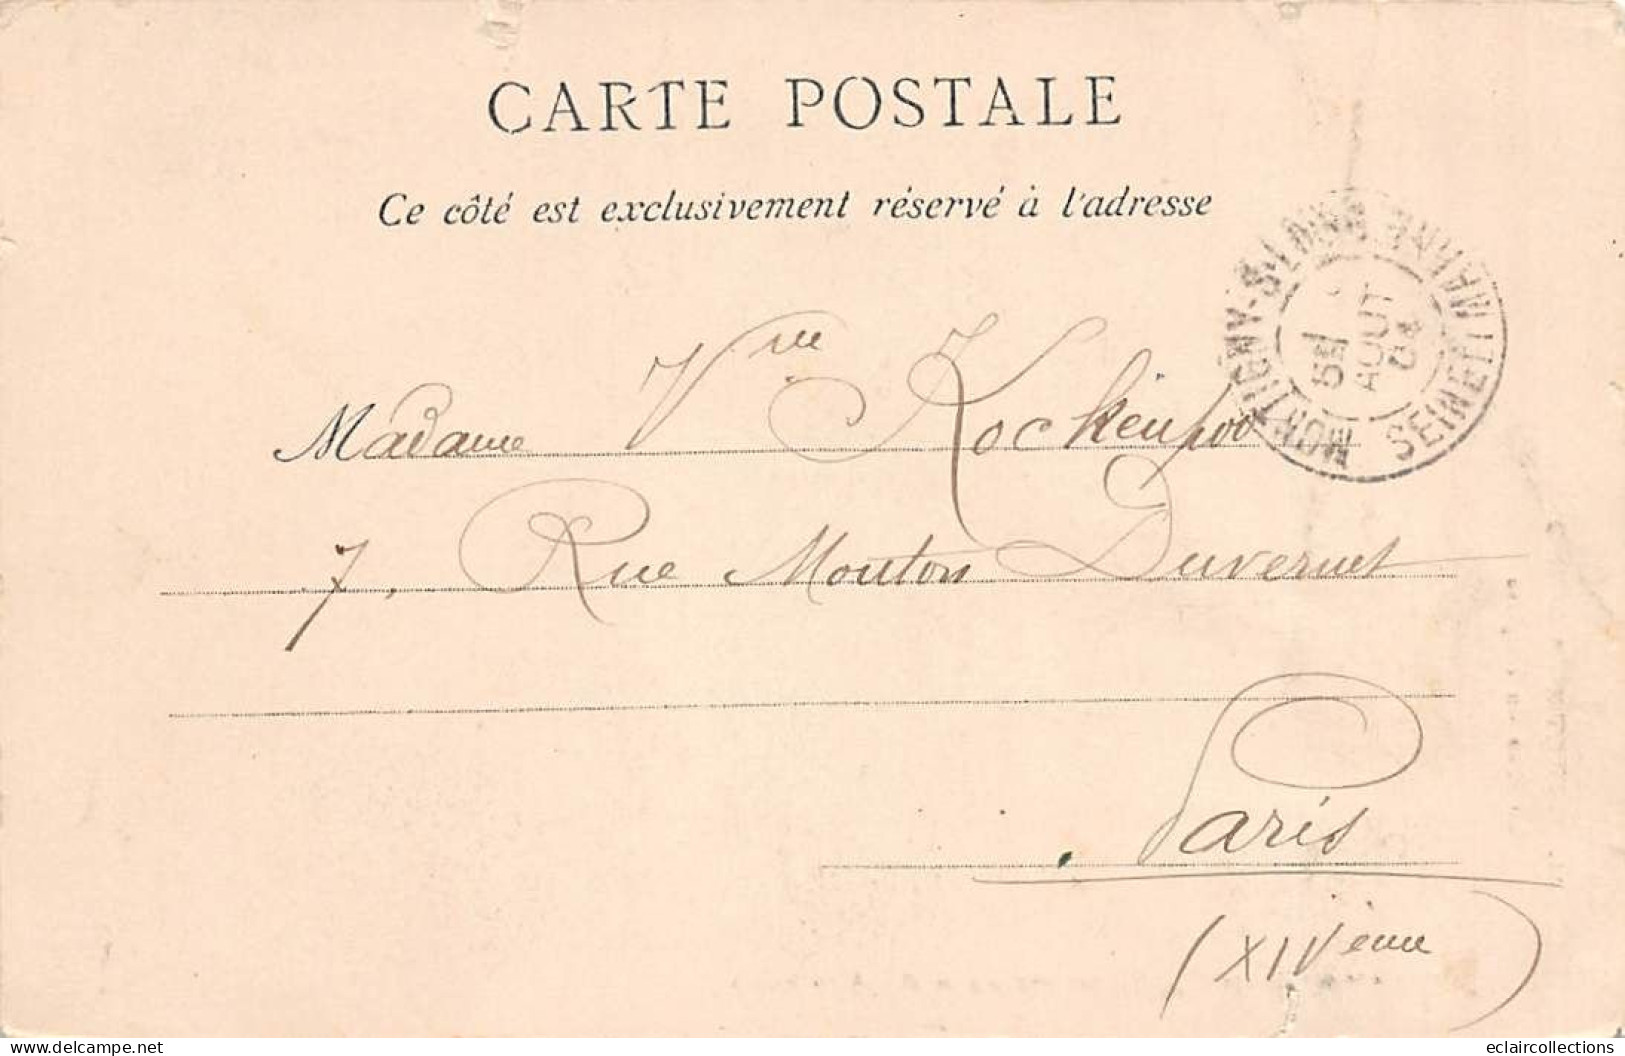 CARTE POSTALE
Ce côté est exclusivement réservé à l'adresse
MONTIGNY-S-LOING SEINE ET MARNE
AOUT
04
Madame Vve
7, Rue Mouton Duvernet
Paris
(XIVème)
delcampe.net
eclaircollections